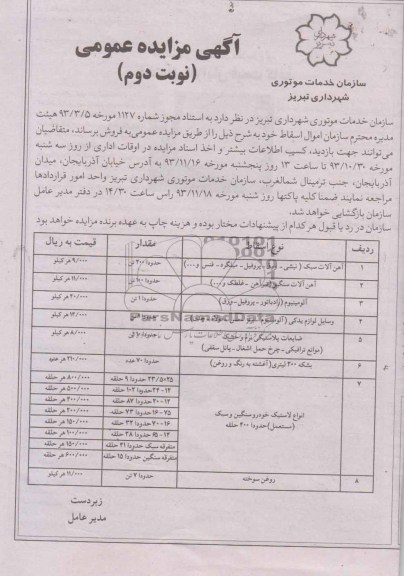 آگهی مزایده عمومی
(نوبت دوم)
سازمان خدمات موتوری
شهرداری تبریز
سازمان خدمات موتوری شهرداری تبریز در نظر دارد به استناد مجوز شماره ۱۱۲۷ مورخه ۹۳/۳/۵ هیئت
مدیره محترم سازمان اموال اسقاط خود به شرح ذیل را از طریق مزایده عمومی به فروش برساند، متقاضیان
می‌توانند جهت بازدید، کسب اطلاعات بیشتر و اخذ اسناد مزایده در اوقات اداری از روز سه شنبه
مورخه ۹۳/۱۰/۳۰ تا ساعت ۱۳ روز پنجشنبه مورخه ۹۳/۱۱/۱۶ به آدرس خیابان آذربایجان، میدان
آذربایجان، جنب ترمینال شمالغرب، سازمان خدمات موتوری شهرداری تبریز واحد امور قراردادها
مراجعه نمایند ضمنا کلیه پاکتها روز شنبه مورخه ۹۳/۱۱/۱۸ راس ساعت ۱۴/۳۰ در دفتر مدیر عامل
سازمان بازگشایی خواهد شد.
سازمان در رد یا قبول هر کدام از پیشنهادات مختار بوده و هزینه چاپ به عهده برنده مزایده خواهد بود
ردیف نوع مقدار قیمت به ریال
۱ آهن آلات سبک ( نبشی - پروفیل - میلگرد - فنس و...) حدودا ۲۰۰ تن ۹/۰۰۰ هر کیلو
۲ آهن آلات سنگین - غلطک و...) حدودا ۱۰۰ تن ۱۱/۰۰۰ هر کیلو
۳ آلومینیوم (رادیاتور - پروفیل - ورق) حدودا ۱ تن ۲۰/۰۰۰ هر کیلو
۴ وسایل لوازم یدکی (آلومینیوم ۱۲/۰۰۰ هر کیلو
۵ ضایعات پلاستیکی نرم و خشک ۸/۰۰۰ هر کیلو
(موانع ترافیکی - چرخ حمل اشغال - پانل سقفی)
۶ بشکه ۲۰۰ لیتری (آغشته به رنگ و روغن) حدودا ۷۰ عدد ۲۱۰/۰۰۰ هر عدد
۷ انواع لاستیک خودرو سنگین و سبک
(مستعمل) حدودا ۴۰۰ حلقه
۲۳/۵۰۲۵ حدودا ۹ حلقه ۸۰۰/۰۰۰ هر حلقه
۲۴-۱۲ حدودا ۱۰۲ حلقه ۵۰۰/۰۰۰ هر حلقه
۲۰-۱۲ حدودا ۸۷ حلقه ۳۰۰/۰۰۰ هر حلقه
۷۵-۱۶ حدودا ۷۳ حلقه ۲۰۰/۰۰۰ هر حلقه
۷۰-۱۶ حدودا ۳۲ حلقه ۱۵۰/۰۰۰ هر حلقه
۶۵-۱۴ حدودا ۳۸ حلقه ۱۰۰/۰۰۰ هر حلقه
متفرقه سبک حدودا ۴۱ حلقه ۱۵۰/۰۰۰ هر حلقه
متفرقه سنگین حدودا ۱۵ حلقه ۶۰۰/۰۰۰ هر حلقه
۸ روغن سوخته حدودا ۷ تن ۱۱/۰۰۰ هر کیلو
زبردست
مدیر عامل